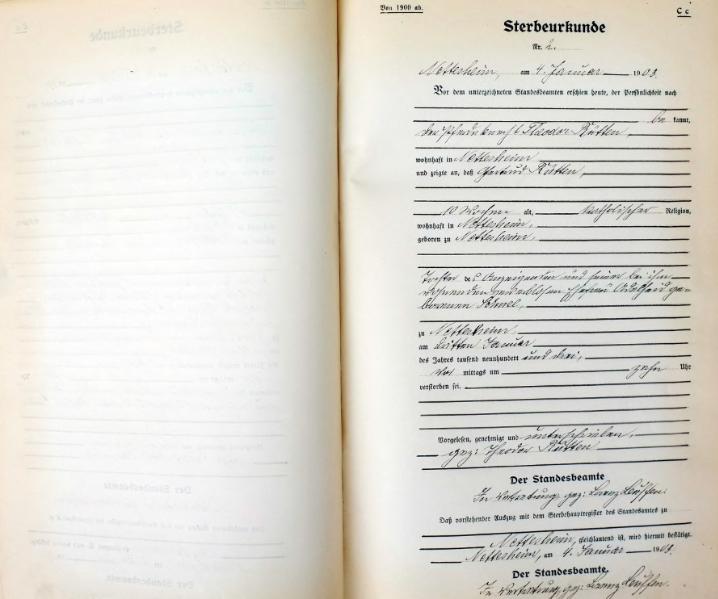 Von 1900 ab.
C c
Sterbeurkunde
Nr. 2.
Nettersheim, am 4. Januar 1903.
Vor dem unterzeichneten Standesbeamten erschien heute, der Persönlichkeit nach
be kannt,
Theodor Rütten,
wohnhaft in Nettersheim
und zeigte an, daß Gertrud Rütten,
10 Wochen alt, katholischer Religion,
wohnhaft in Nettersheim,
geboren zu Nettersheim,
Tochter des Anzeigenden und seiner bei ihm
wohnenden Ehefrau Adelheid ge-
borenen
zu Nettersheim
am dritten Januar
des Jahres tausend neunhundert und drei,
Vor mittags um zehn Uhr
verstorben sei.
Vorgelesen, genehmigt und unterschrieben.
gez: Theodor Rütten
Der Standesbeamte
In Vertretung gez:
Daß vorstehender Auszug mit dem Sterbehauptregister des Standesamtes zu
Nettersheim, gleichlautend ist, wird hiermit bestätigt.
Nettersheim, am 4. Januar 1903.
Der Standesbeamte.
In Vertretung gez: